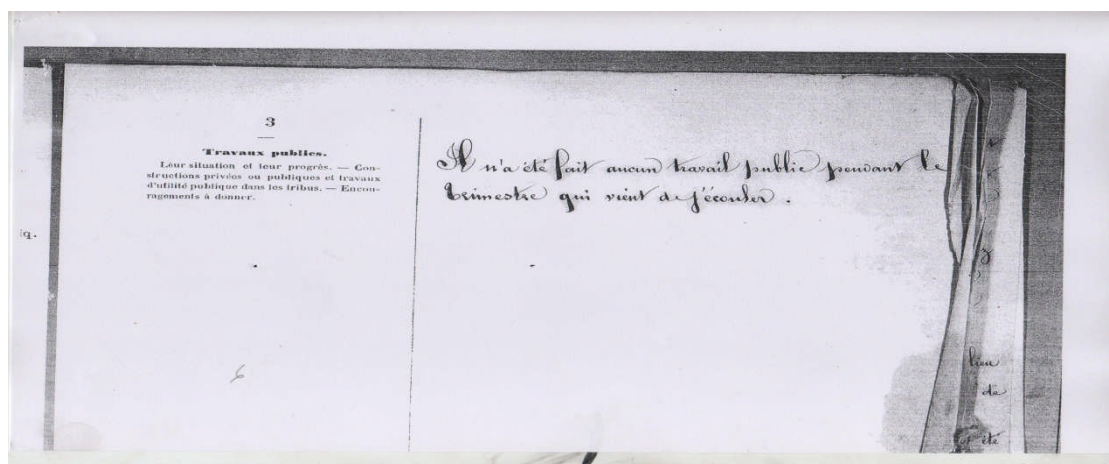 3
Travaux publics.
Leur situation et leur progrès. — Con-
structions privées ou publiques et travaux
d'utilité publique dans les tribus. — Encou-
ragements à donner.
Il n'a été fait aucun travail public pendant le
trimestre qui vient de s'écouler.
iq.
6
lieu
de
été